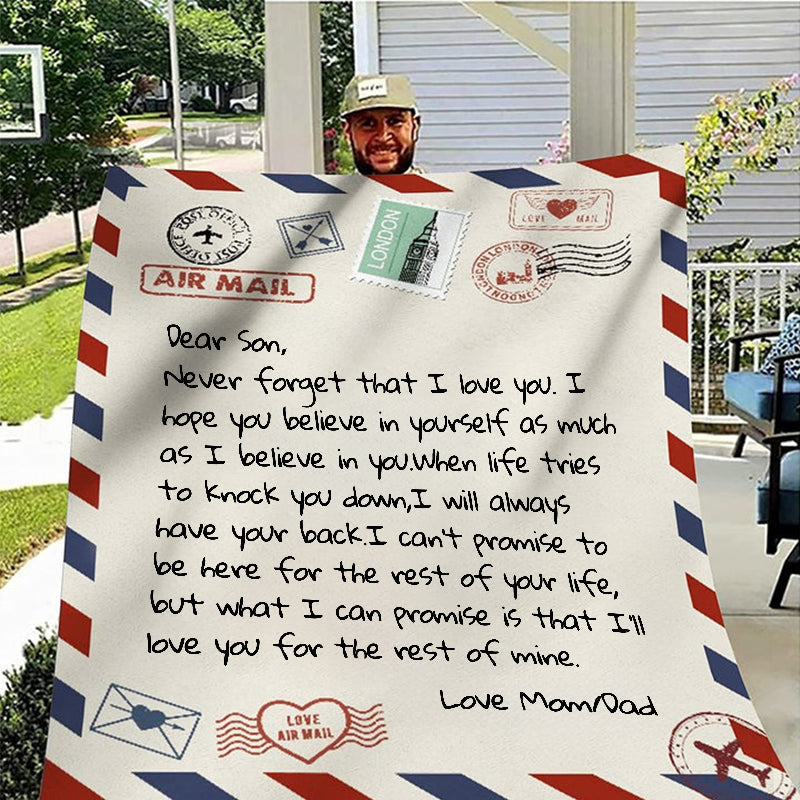 POST OFFICE
POST OFFICE
LONDON
LOVE MAIL
LONDON LONDON LONDON LONDON
AIR MAIL
Dear Son,
Never forget that I love you. I
hope you believe in yourself as much
as I believe in you.When life tries
to knock you down,I will always
have your back.I can't promise to
be here for the rest of your life,
but what I can promise is that I'll
love you for the rest of mine.
Love Mom/Dad
LOVE
AIR MAIL